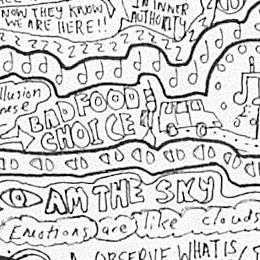 NOW THEY KNOW
WE ARE HERE!!
INNER
AUTHORITY
illusion
BAD FOOD
CHOICE
AM THE SKY
Emotions are like clouds
OBSERVE WHAT IS